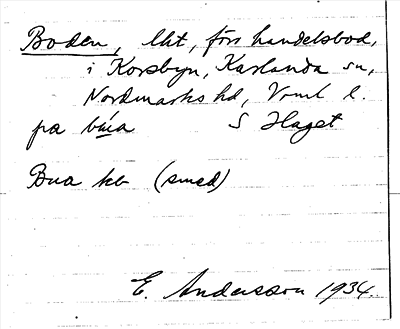 Boden, lht, förr handelsbod,
i Korsbyn, Karlanda sn,
Nordmarks hd, Vrml l.
på búa S Haget
Bua kb (smed)
E. Andersson 1934.